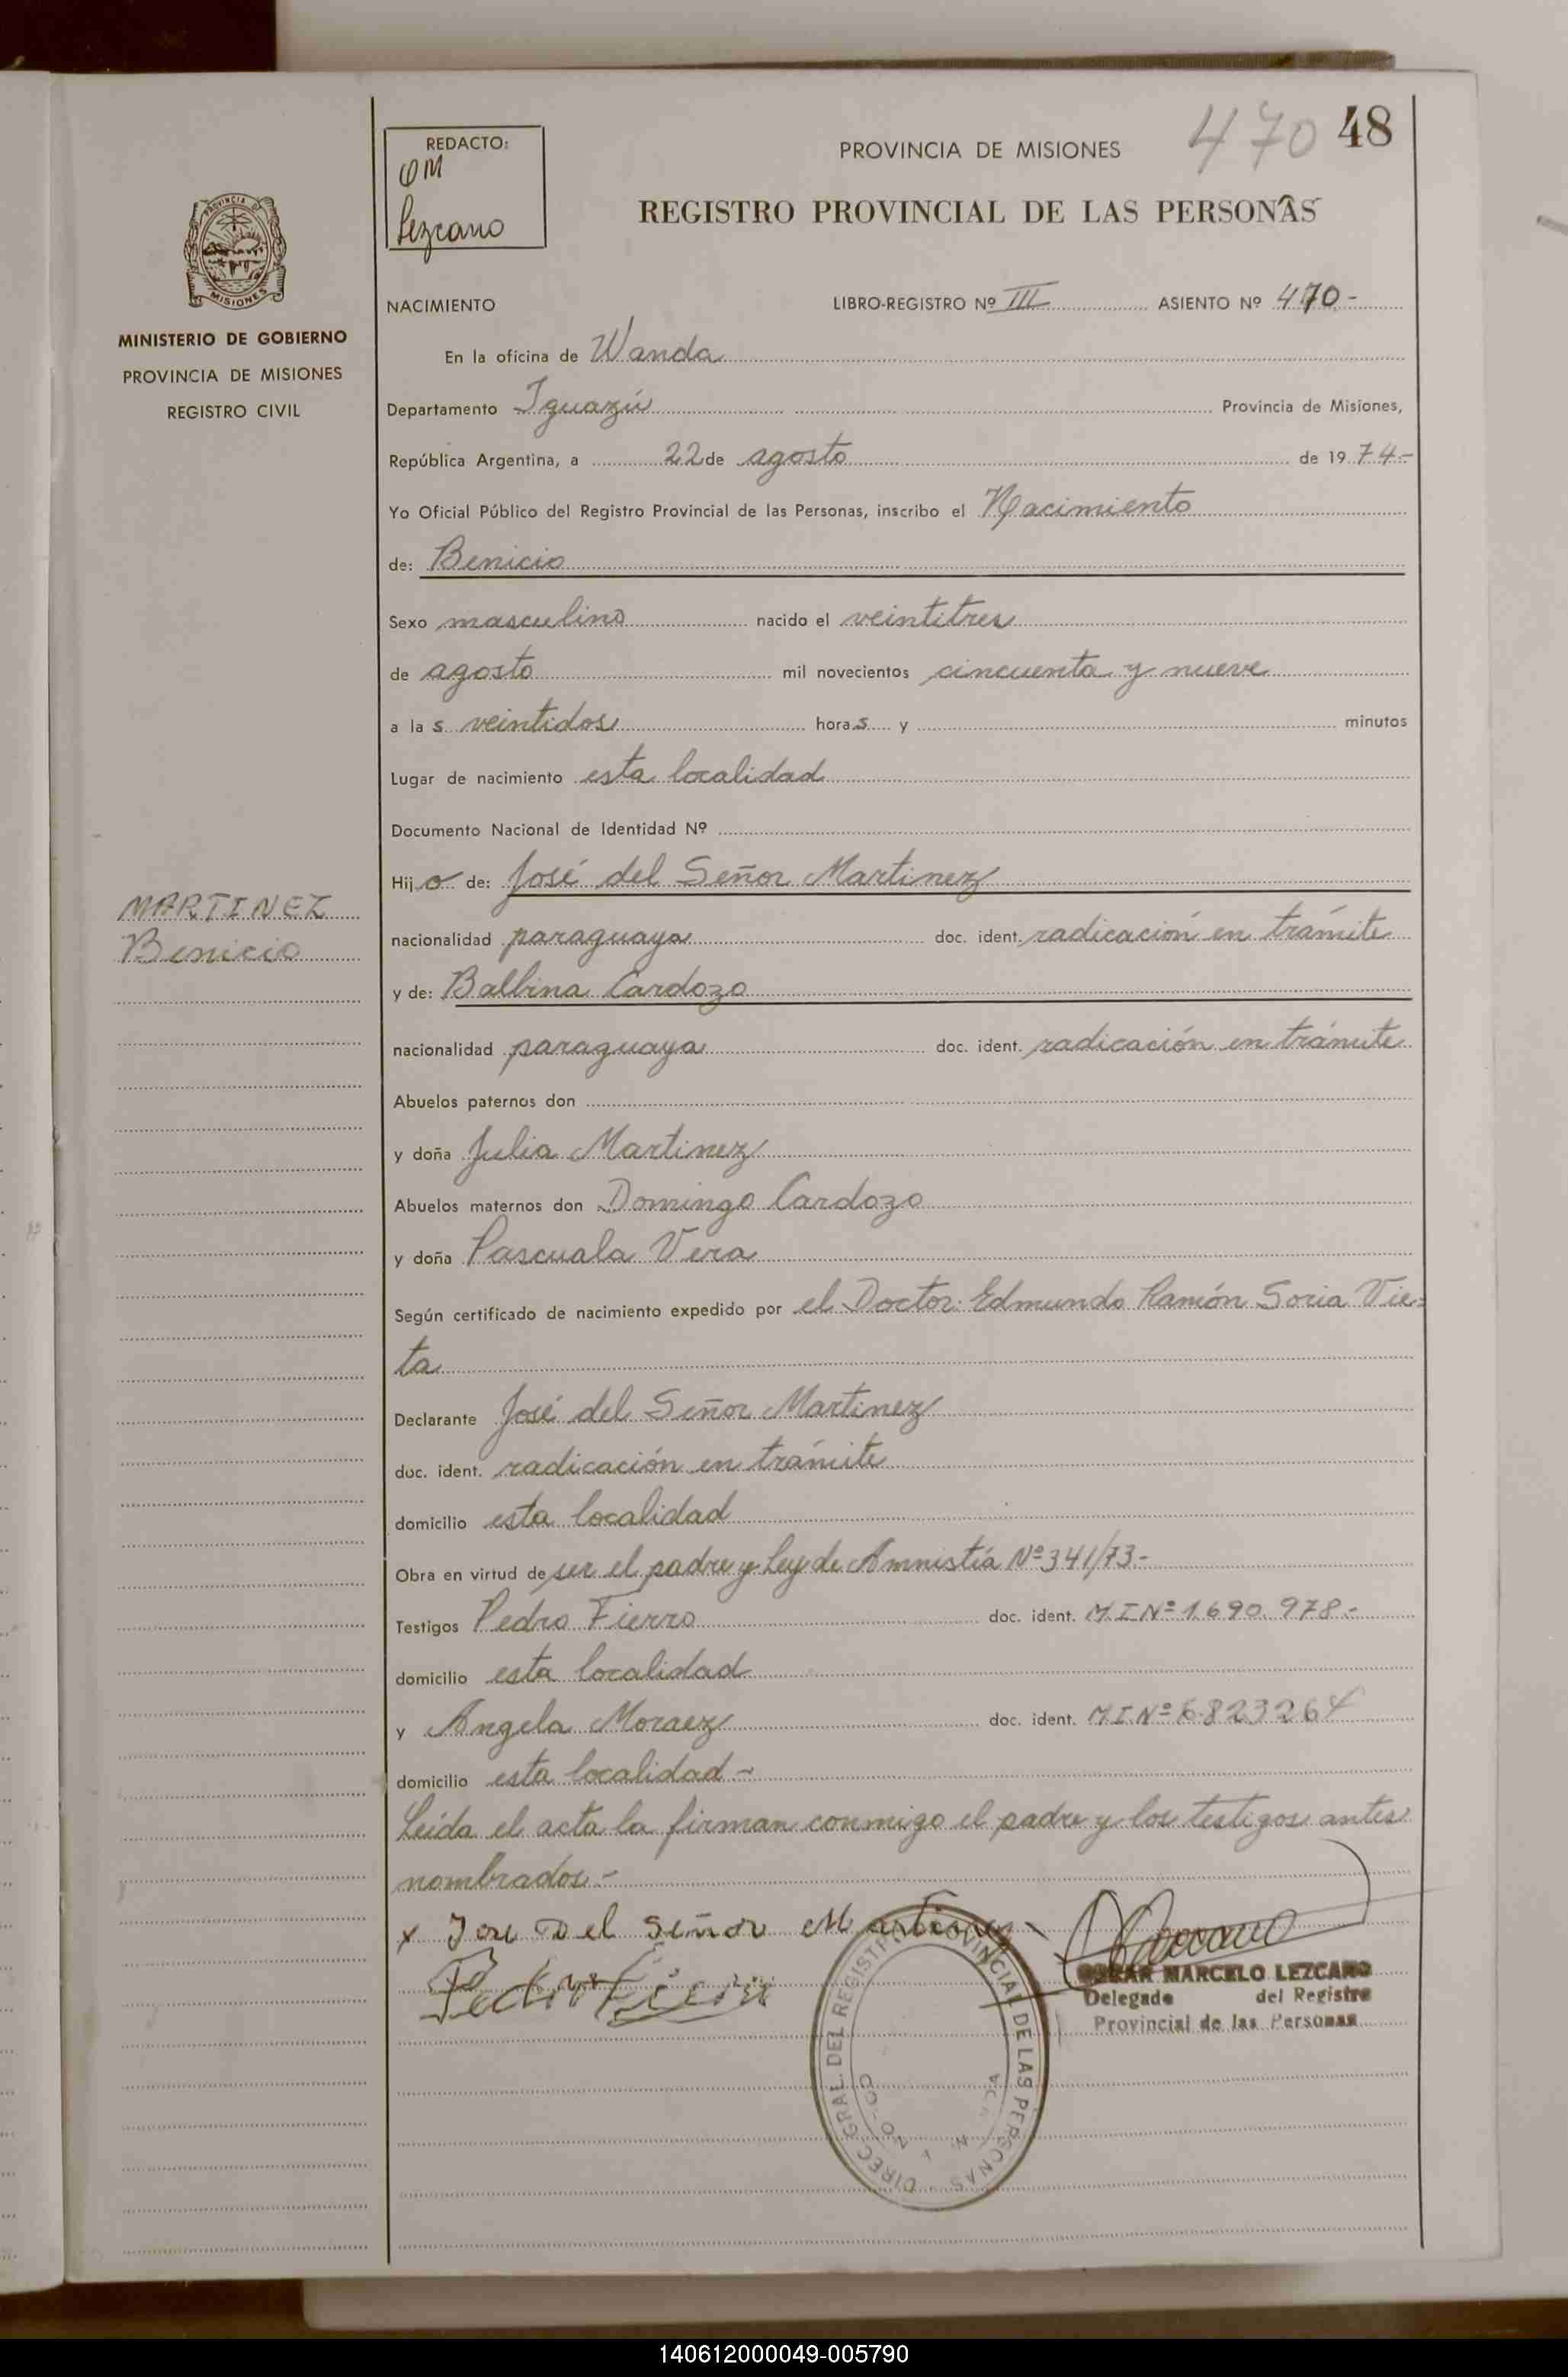 470 48
REDACTO:
OM
Lezcano
PROVINCIA DE MISIONES
REGISTRO PROVINCIAL DE LAS PERSONAS
PROVINCIA DE
MISIONES
MINISTERIO DE GOBIERNO
PROVINCIA DE MISIONES
REGISTRO CIVIL
NACIMIENTO LIBRO-REGISTRO Nº III ASIENTO Nº 470-
En la oficina de Wanda
Departamento Iguazú Provincia de Misiones,
República Argentina, a 22 de agosto de 1974.-
Yo Oficial Público del Registro Provincial de las Personas, inscribo el Nacimiento
de: Benicio
Sexo masculino nacido el veintitres
de agosto mil novecientos cincuenta y nueve
a las veintidos horas y minutos
Lugar de nacimiento esta localidad
Documento Nacional de Identidad Nº
Hijo de: José del Señor Martinez
MARTINEZ
Benicio
nacionalidad paraguaya doc. ident. radicación en trámite
y de: Balbina Cardozo
nacionalidad paraguaya doc. ident. radicación en trámite
Abuelos paternos don
y doña Julia Martinez
Abuelos maternos don Domingo Cardozo
y doña Pascuala Vera
Según certificado de nacimiento expedido por el Doctor: Edmundo Ramón Soria Vie=
ta
Declarante José del Señor Martinez
doc. ident. radicación en trámite
domicilio esta localidad
Obra en virtud de ser el padre y Ley de Amnistía Nº 341/73.-
Testigos Pedro Fierro doc. ident. M.I.Nº 1.690.978.-
domicilio esta localidad
y Angela Moraez doc. ident. M.I.Nº 6.823264
domicilio esta localidad-
Leída el acta la firman conmigo el padre y los testigos antes
nombrados.-
x Jose Del Señor Martinez
Pedro Fierro
OSCAR MARCELO LEZCANO
Delegado del Registro
Provincial de las Personas
DIREC. GRAL. DEL REGISTRO PROVINCIAL DE LAS PERSONAS
140612000049-005790